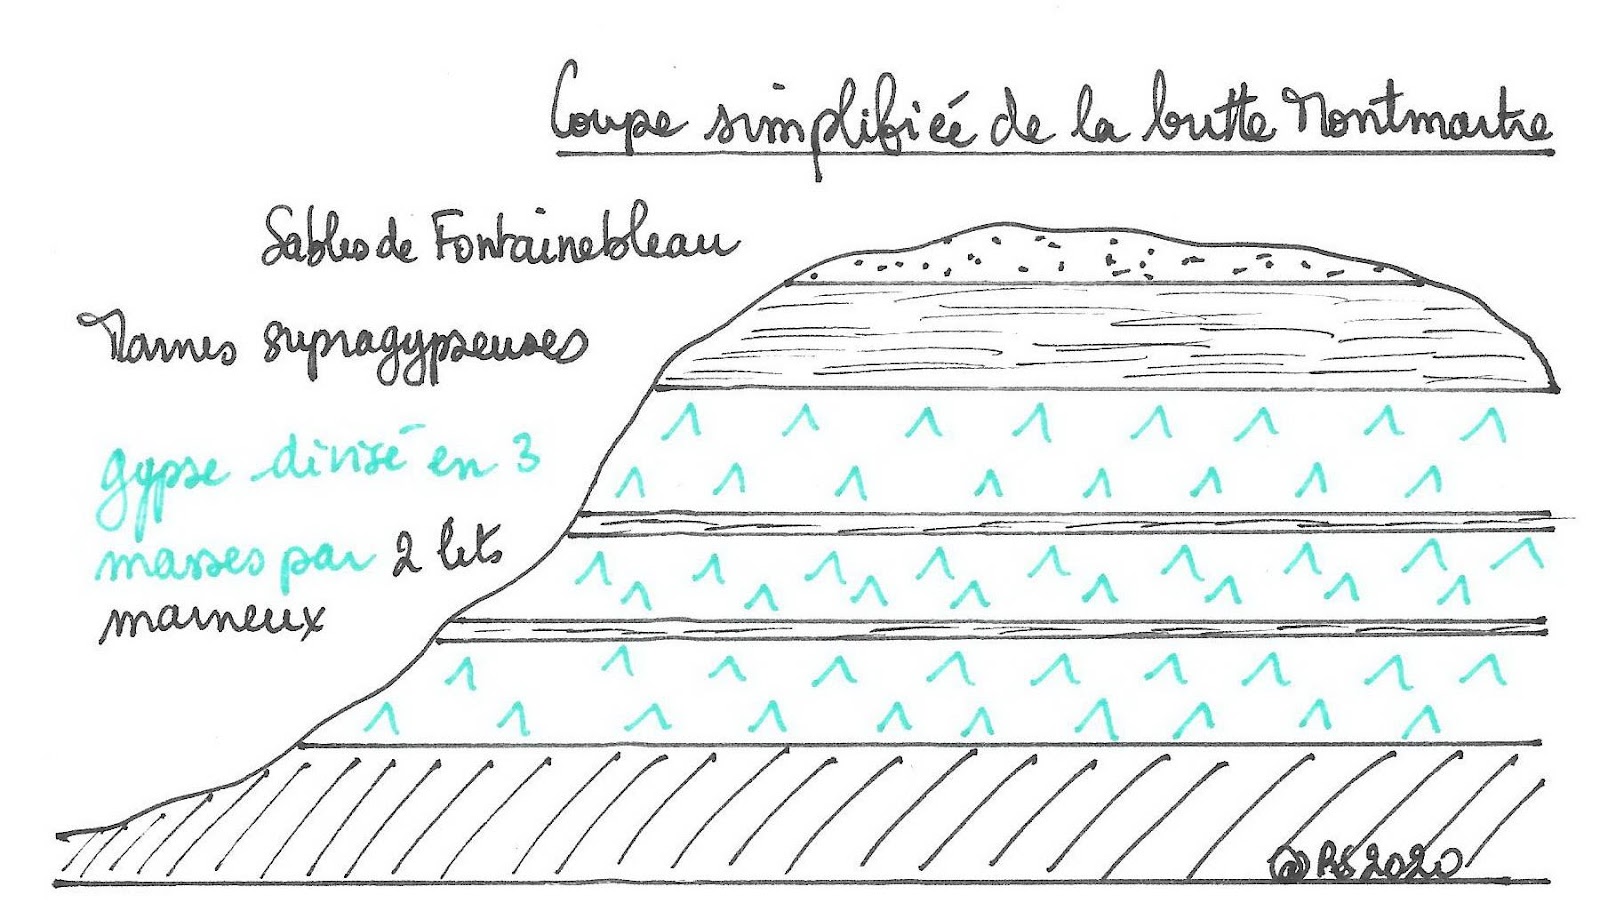 Coupe simplifiée de la butte Montmartre
Sables de Fontainebleau
Marnes supragypseuses
gypse divisé en 3
masses par 2 lits
marneux
@RS2020